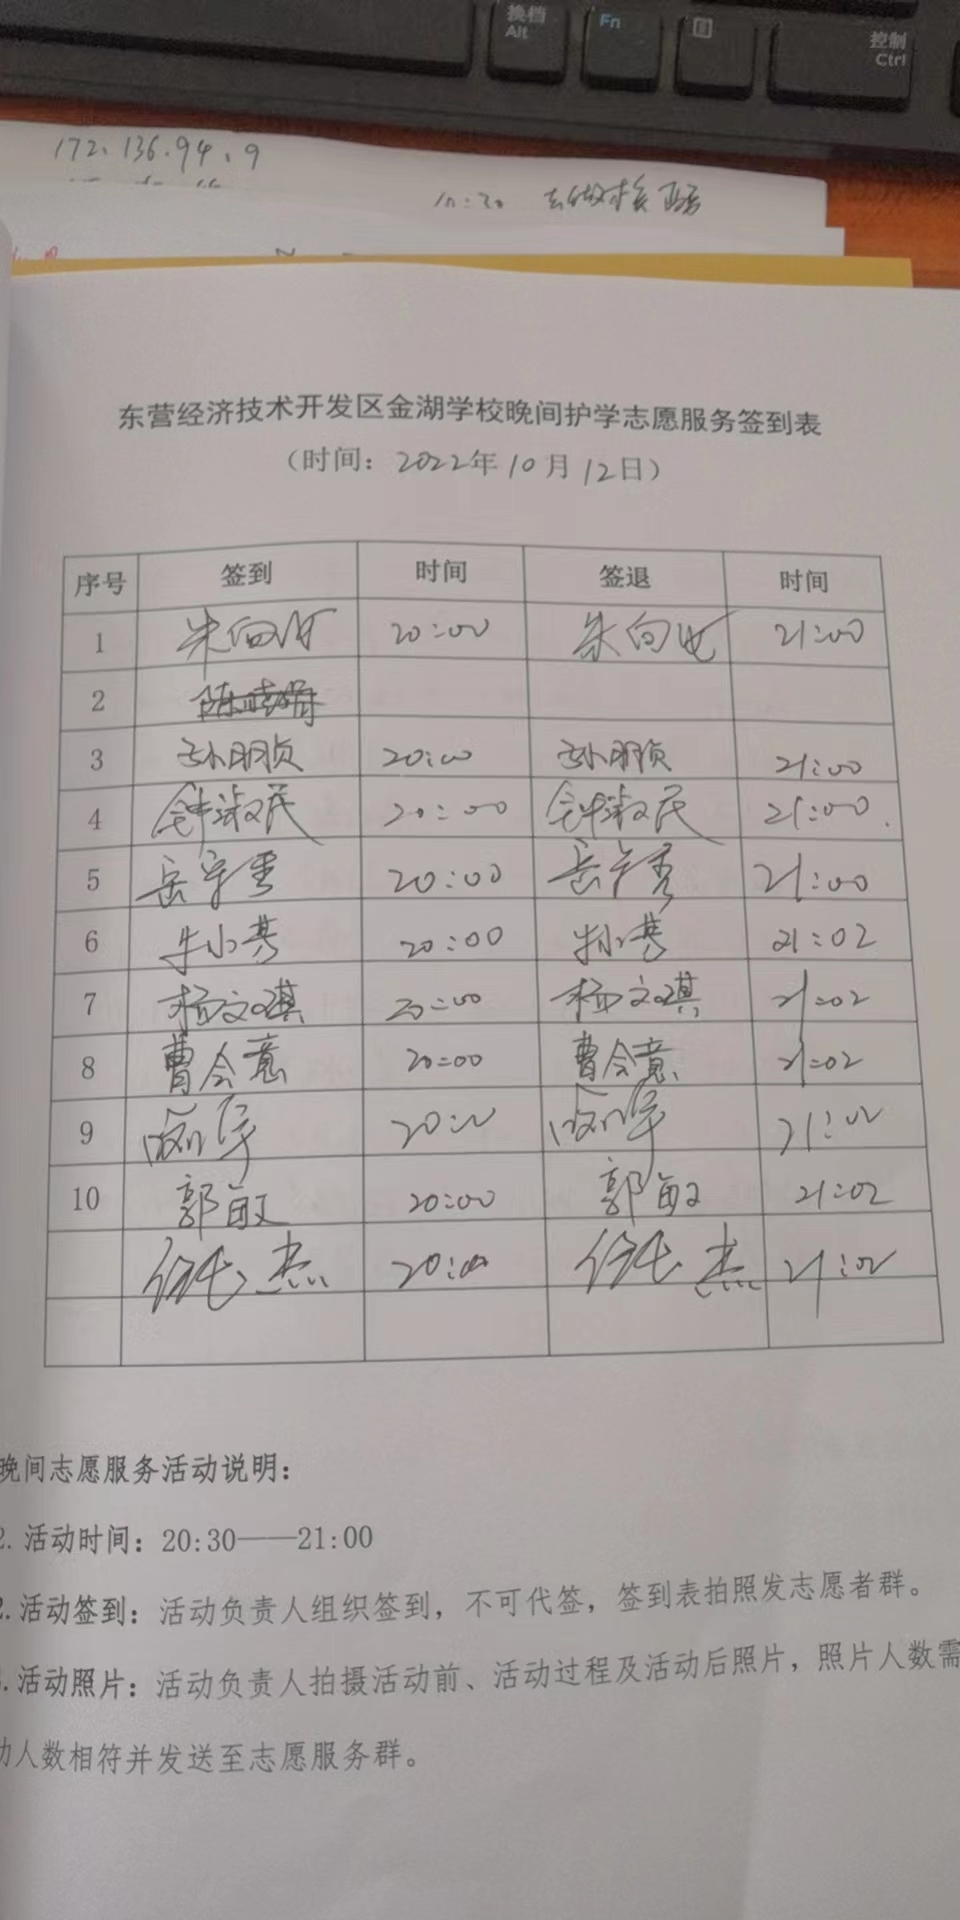 换档
Alt
Fn
控制
Ctrl
172.136.94.9
10:20 去做核酸
东营经济技术开发区金湖学校晚间护学志愿服务签到表
（时间：2022年10月12日）
序号 签到 时间 签退 时间
1 朱向 20:00 朱向 21:00
2
3 孙朋贞 20:00 孙朋贞 21:00
4 钟淑民 20:00 钟淑民 21:00.
5 岳 20:00 岳 21:00
6 牛小 20:00 牛小 21:02
7 杨文琪 20:00 杨文琪 21:02
8 曹会意 20:00 曹会意 21:02
9 20:00 21:02
10 郭敏 20:00 郭敏 21:02
杰 20:00 杰 21:02
晚间志愿服务活动说明：
2. 活动时间：20:30——21:00
2. 活动签到：活动负责人组织签到，不可代签，签到表拍照发志愿者群。
. 活动照片：活动负责人拍摄活动前、活动过程及活动后照片，照片人数需
人数相符并发送至志愿服务群。